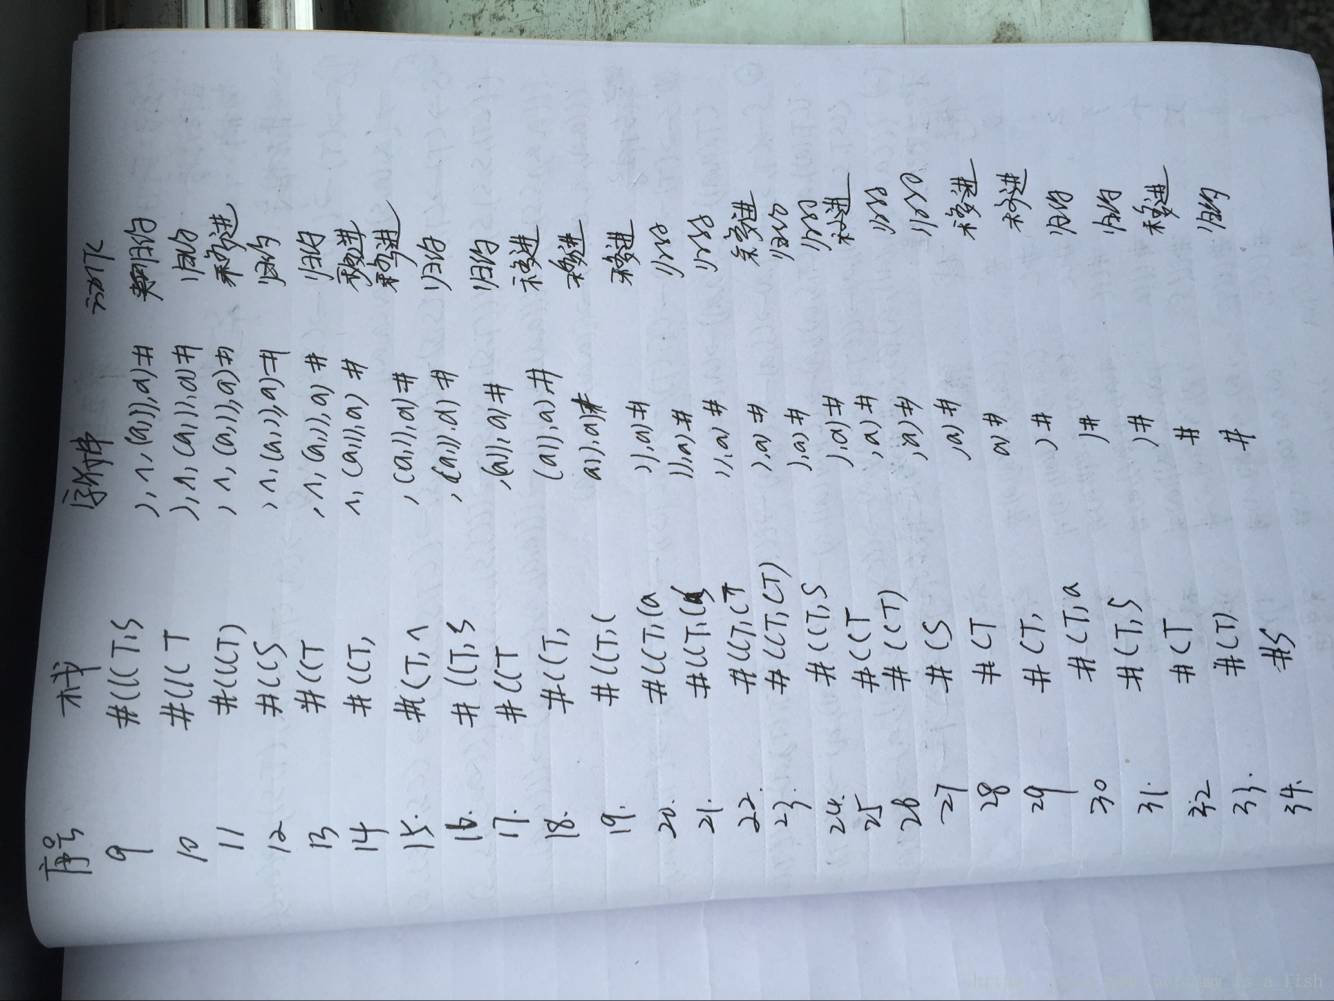 序号 栈 字符串 动作
9 #(((T,S ),∧,(a)),a)# 归约
10 #(((T ),∧,(a)),a)# 归约
11 #(((T) ,∧,(a)),a)# 移进
12 #((S ,∧,(a)),a)# 归约
13 #((T ,∧,(a)),a)# 归约
14 #((T, ∧,(a)),a)# 移进
15. #((T,∧ ,(a)),a)# 移进
16. #((T,S ,(a)),a)# 归约
17. #((T ,(a)),a)# 归约
18. #((T, (a)),a)# 移进
19. #((T,( a)),a)# 移进
20. #((T,(a )),a)# 移进
21. #((T,(S )),a)# 归约
22. #((T,(T )),a)# 归约
23. #((T,(T) ),a)# 移进
24. #((T,S ),a)# 归约
25 #((T ),a)# 归约
26 #((T) ,a)# 移进
27 #(S ,a)# 归约
28 #(T ,a)# 归约
29 #(T, a# 移进
30 #(T,a )# 移进
31. #(T,S )# 归约
32 #(T )# 归约
33. #(T). # 移进
34. #S # 归约